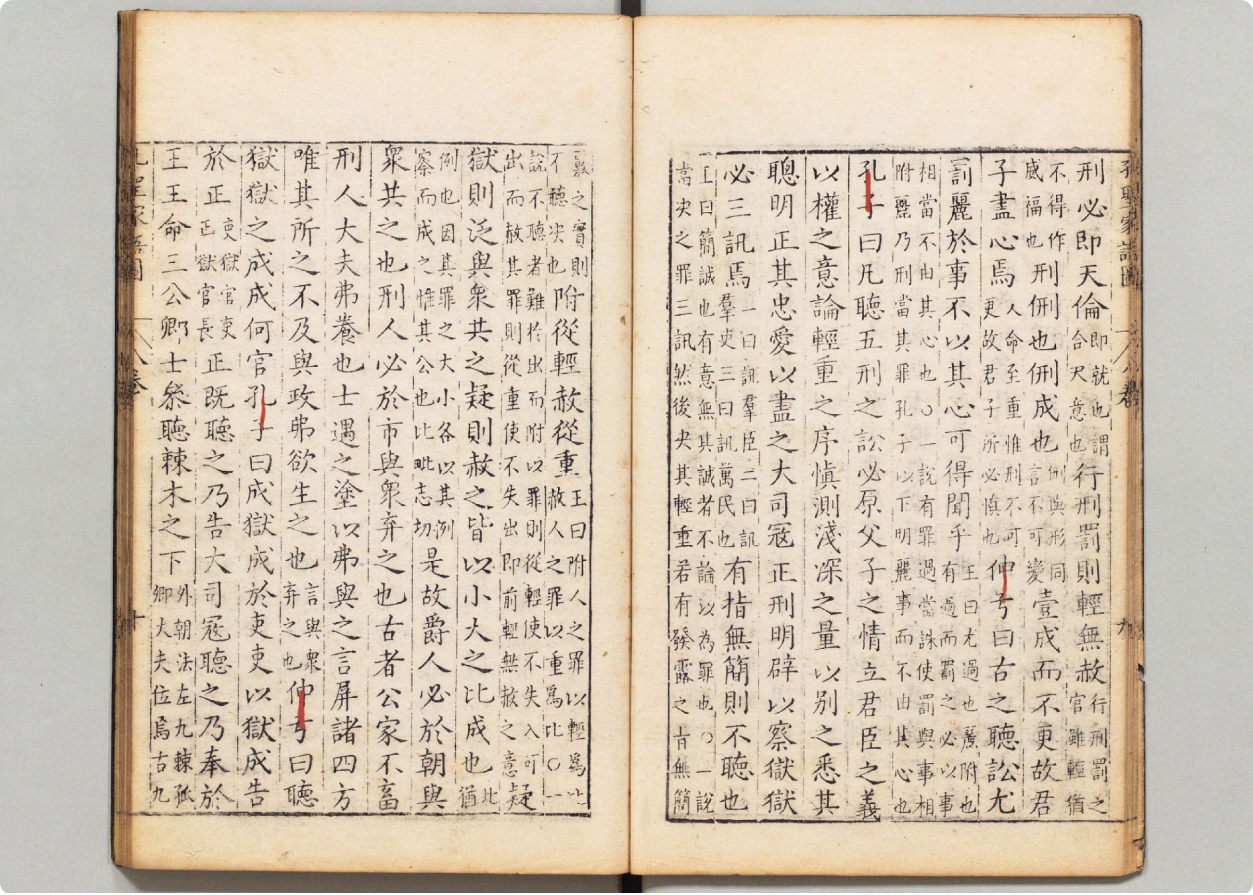 孔聖家語圖 八卷 九
刑必即天倫即就也謂合天意也行刑罰則輕無赦行刑罰之官雖輕猶
不得作威福也刑侀也侀成也侀與形同言不可變壹成而不更故君
子盡心焉人命至重惟刑不可更故君子所必慎也仲弓曰古之聽訟尤
罰麗於事不以其心可得聞乎王曰尤過也麗附也有過而罰之必以事
相當不由其心也○一說有罪過當誅使罰與事相附麗乃刑當其罪孔子以下明麗事而不由其心也
孔子曰凡聽五刑之訟必原父子之情立君臣之義
以權之意論輕重之序慎測淺深之量以別之悉其
聰明正其忠愛以盡之大司寇正刑明辟以察獄獄
必三訊焉一曰訊羣臣二曰訊羣吏三曰訊萬民也有指無簡則不聽也
王曰簡誠也有意無其誠者不論以為罪也○一說當决之罪三訊然後决其輕重若有發露之旨無簡
覈之實則不聽决也附從輕赦從重王曰附人之罪以輕為比赦人之罪以重爲比○一
說不聽者難於出而附以罪則從輕使不失入可出而赦其罪則從重使不失出即前輕無赦之意疑
獄則泛與衆共之疑則赦之皆以小大之比成也比猶
例也因其罪之大小各以其例察而成之惟其公也比毗志切是故爵人必於朝與
衆共之也刑人必於市與衆弃之也古者公家不畜
刑人大夫弗養也士遇之塗以弗與之言屏諸四方
唯其所之不及與政弗欲生之也言與衆弃之也仲弓曰聽
獄獄之成成何官孔子曰成獄成於吏吏以獄成告
於正吏獄官吏正獄官長正既聽之乃告大司寇聽之乃奉於
王王命三公卿士叅聽棘木之下外朝法左九棘孤卿大夫位焉古九
孔聖家語圖 八卷 十